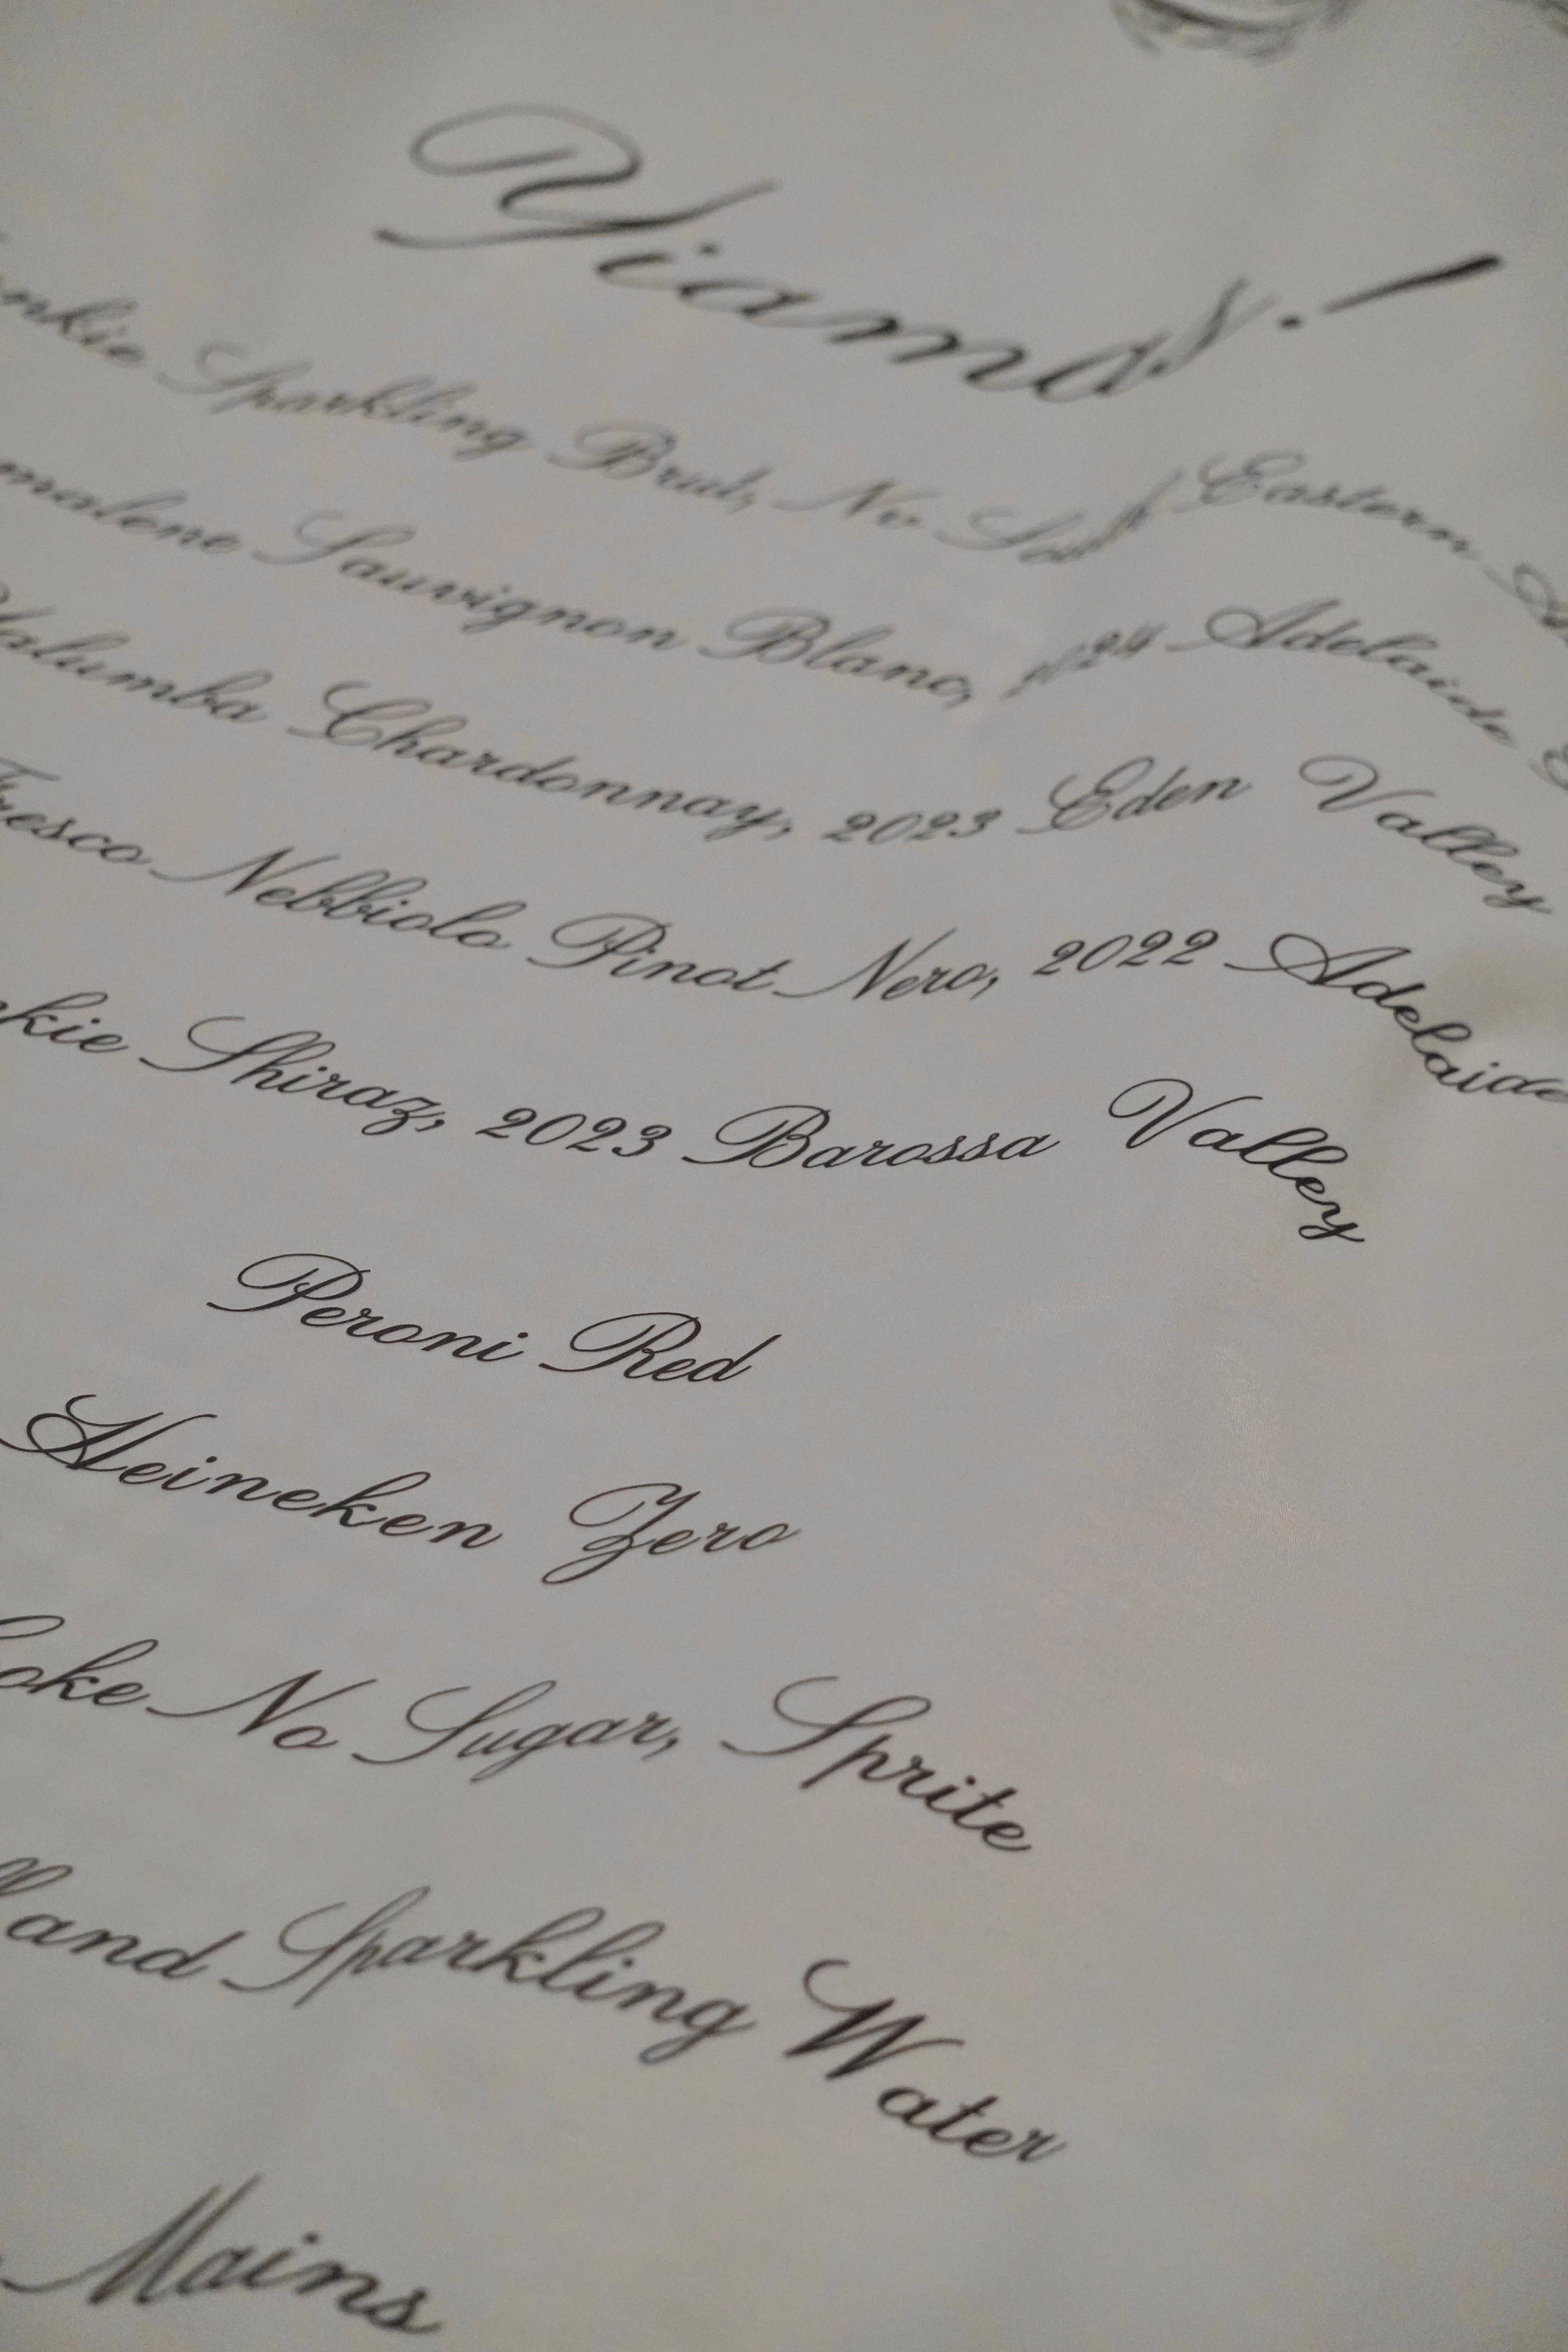 Yiamas!
nkie Sparkling Brut, No Eastern
malene Sauvignon Blanc, 2024 Adelaide
Yalumba Chardonnay, 2023 Eden Valley
Fresco Nebbiolo Pinot Nero, 2022 Adelaide
kie Shiraz, 2023 Barossa Valley
Peroni Red
Heineken Zero
Coke No Sugar, Sprite
and Sparkling Water
Mains